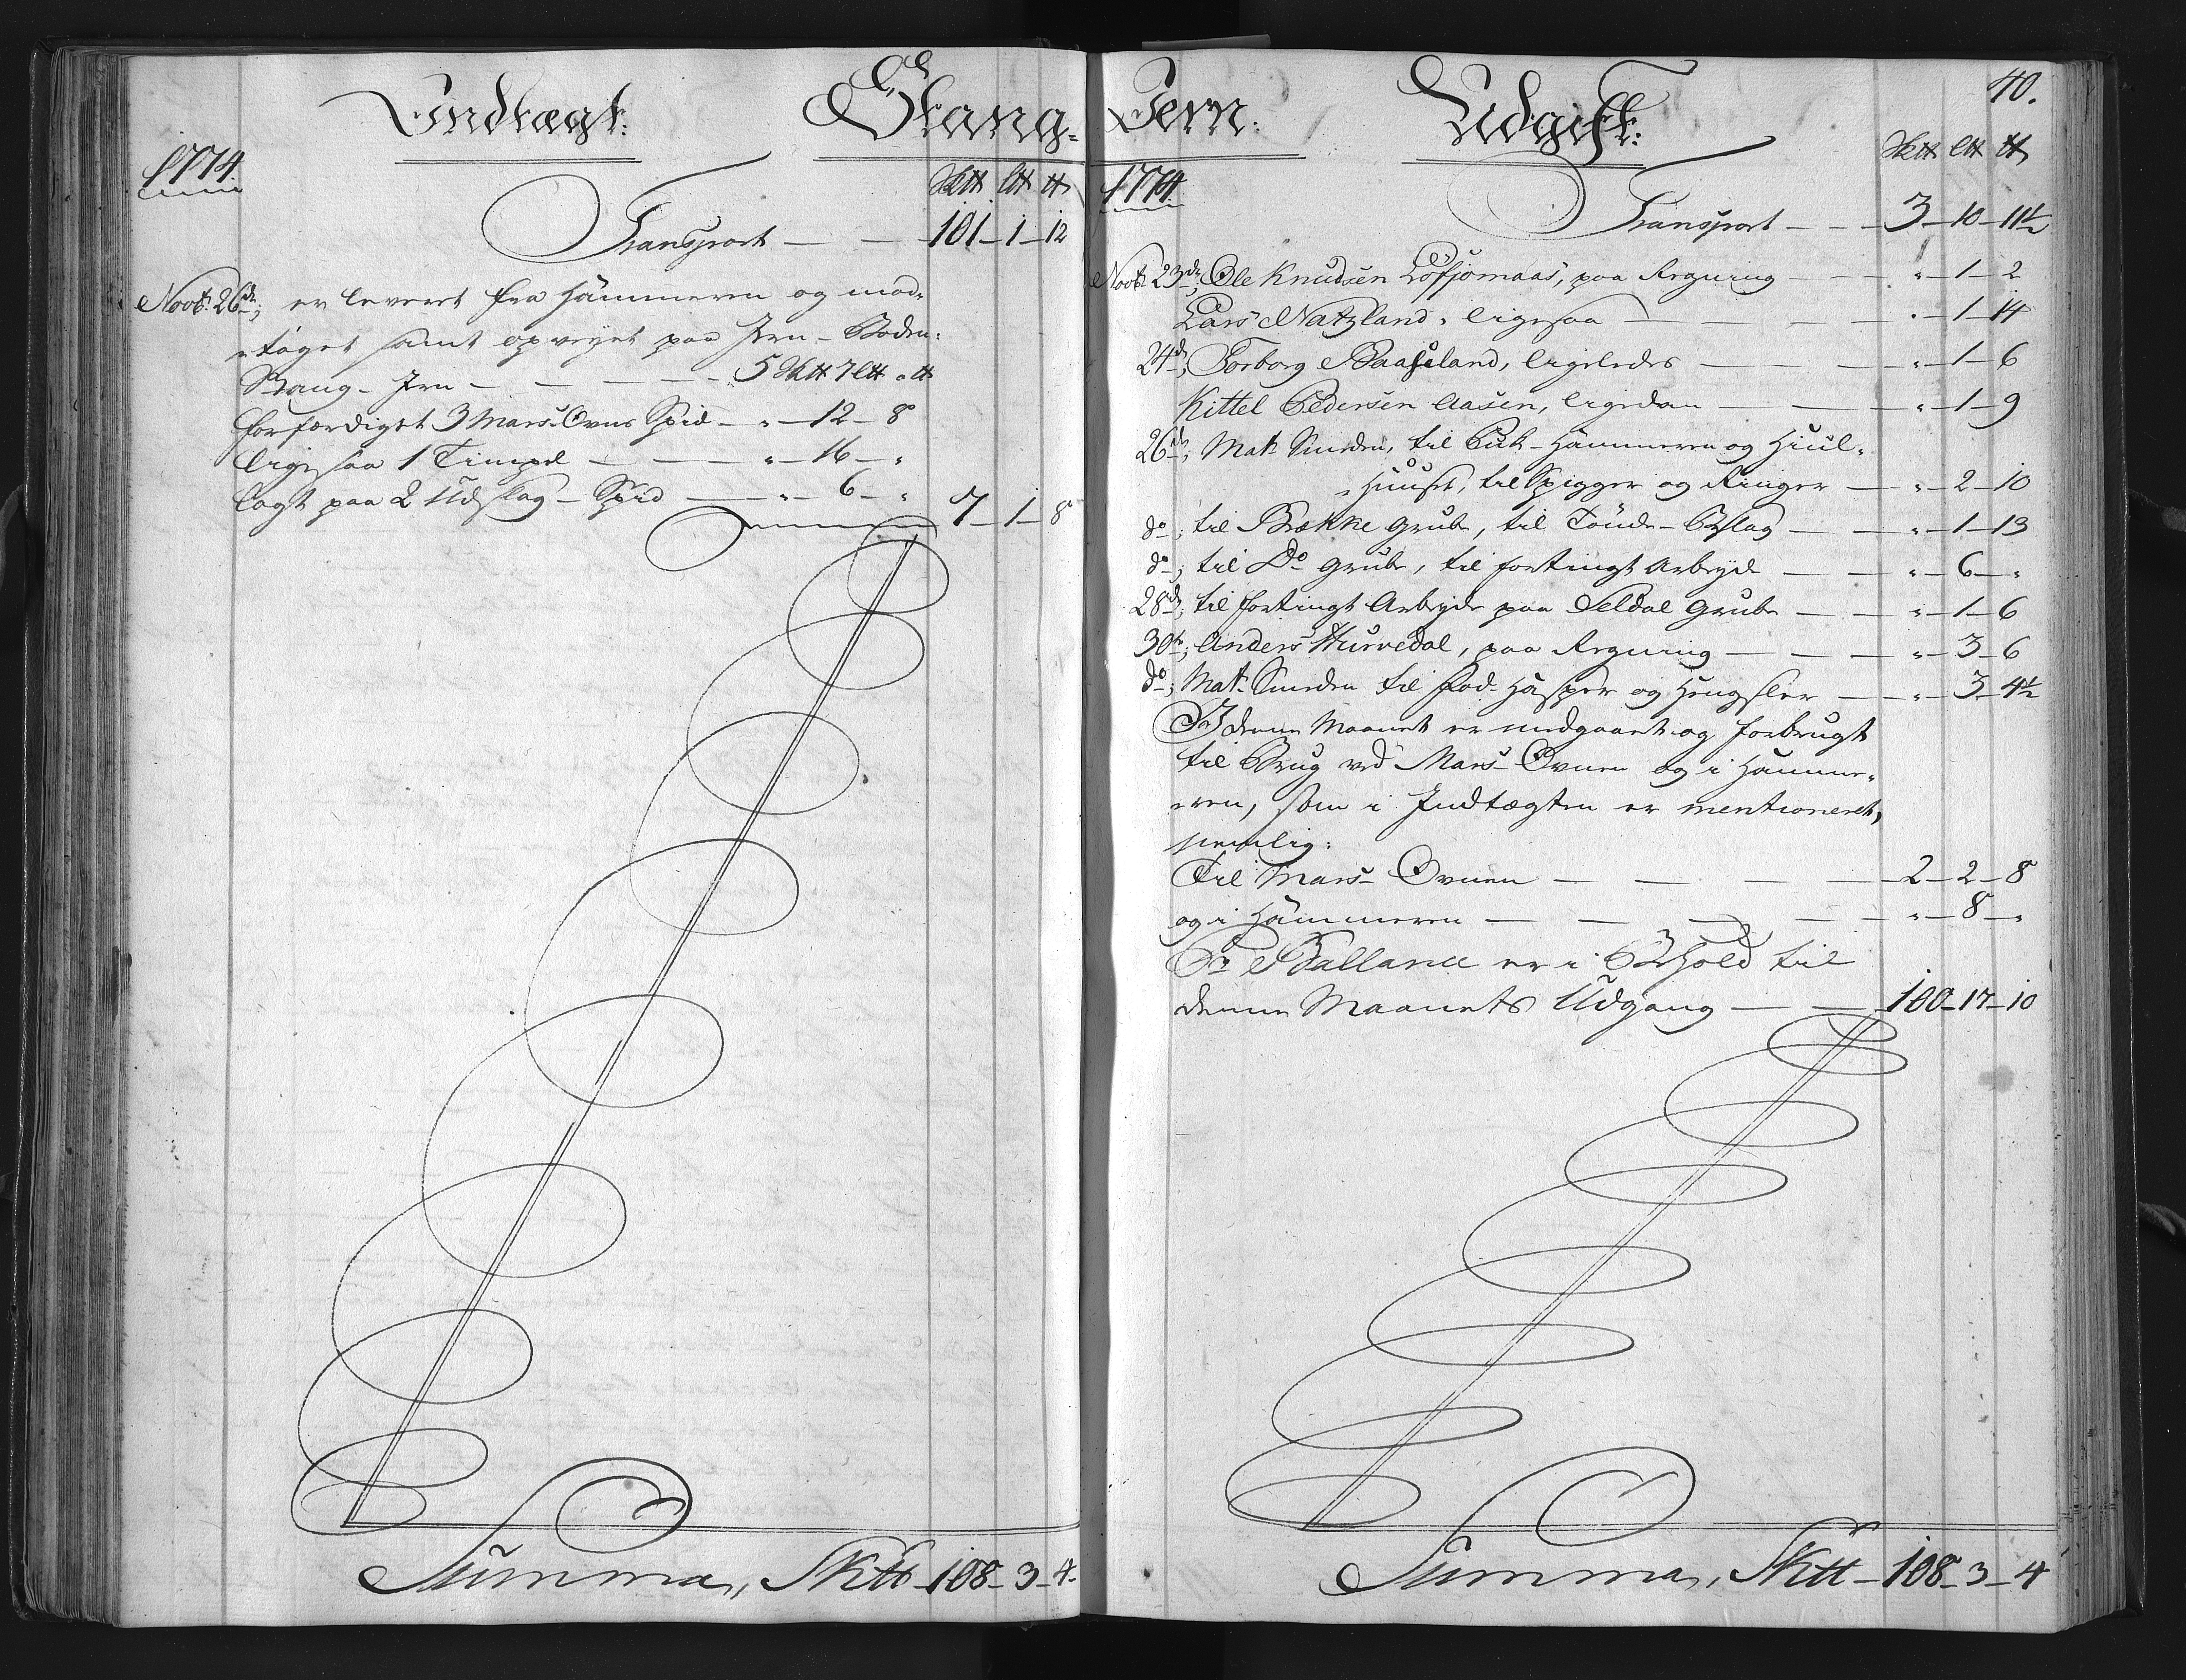 Indtægt: Stang-
1774
Sk℔ L℔ ℔
Transport — — 101-1-12
Novbr. 26de; er leveret fra Hammeren og mod-
-taget samt opveyet paa Jern-Boden:
Stang-Jern — — — — 5 Sk℔ 7 L℔ " ℔
forfærdiget 3 Mars-Ovns Spid — " — 12 — 8
ligesaa 1 Timpel — — — " — 16 — "
lagt paa 2 Udslag-Spid — — " — 6 — " 7-1-8
Summa, Sk℔ 108-3-4-
Jern: Udgift: 40.
1774
Sk℔ L℔ ℔
Transport — — — 3-10-11½
Novbr. 23de; Ole Knudsen Løfjomaas, paa Regning — — " — 1 — 2
Lars Natzland, ligesaa — — — " — 1 — 14
24de; Torborg Baaseland, ligeledes — — — " — 1 — 6
Kittel Pedersen Aasen, ligedan — — — " — 1 — 9
26de; Mat. Smeden, til Puk-Hammeren og Hiul-
-Huuset, til Spigger og Ringer — " — 2 — 10
do; til Brække Grube, til Tønde-Beslag — — " — 1 — 13
do; til Do Grube, til fortingt Arbeyde — — " — 6 — "
28de; til fortingt Arbeyde paa Seldal Grube — — " — 1 — 6
30te; Anders Hurvedal, paa Regning — — — " — 3 — 6
do; Mat. Smeden til Lad-Hasper og Hengsler — — " — 3 — 4½
I denne Maanet er medgaaet og forbrugt
til Brug ved Mars-Ovnen og i Hamme-
-ren, som i Indtægten er mentioneret,
nemlig:
Til Mars-Ovnen — — — — 2-2-8
og i Hammeren — — — — " — 8 — "
Pr Ballance er i Behold til
denne Maanets Udgang — — 100-17-10
Summa, Sk℔ — 108-3-4